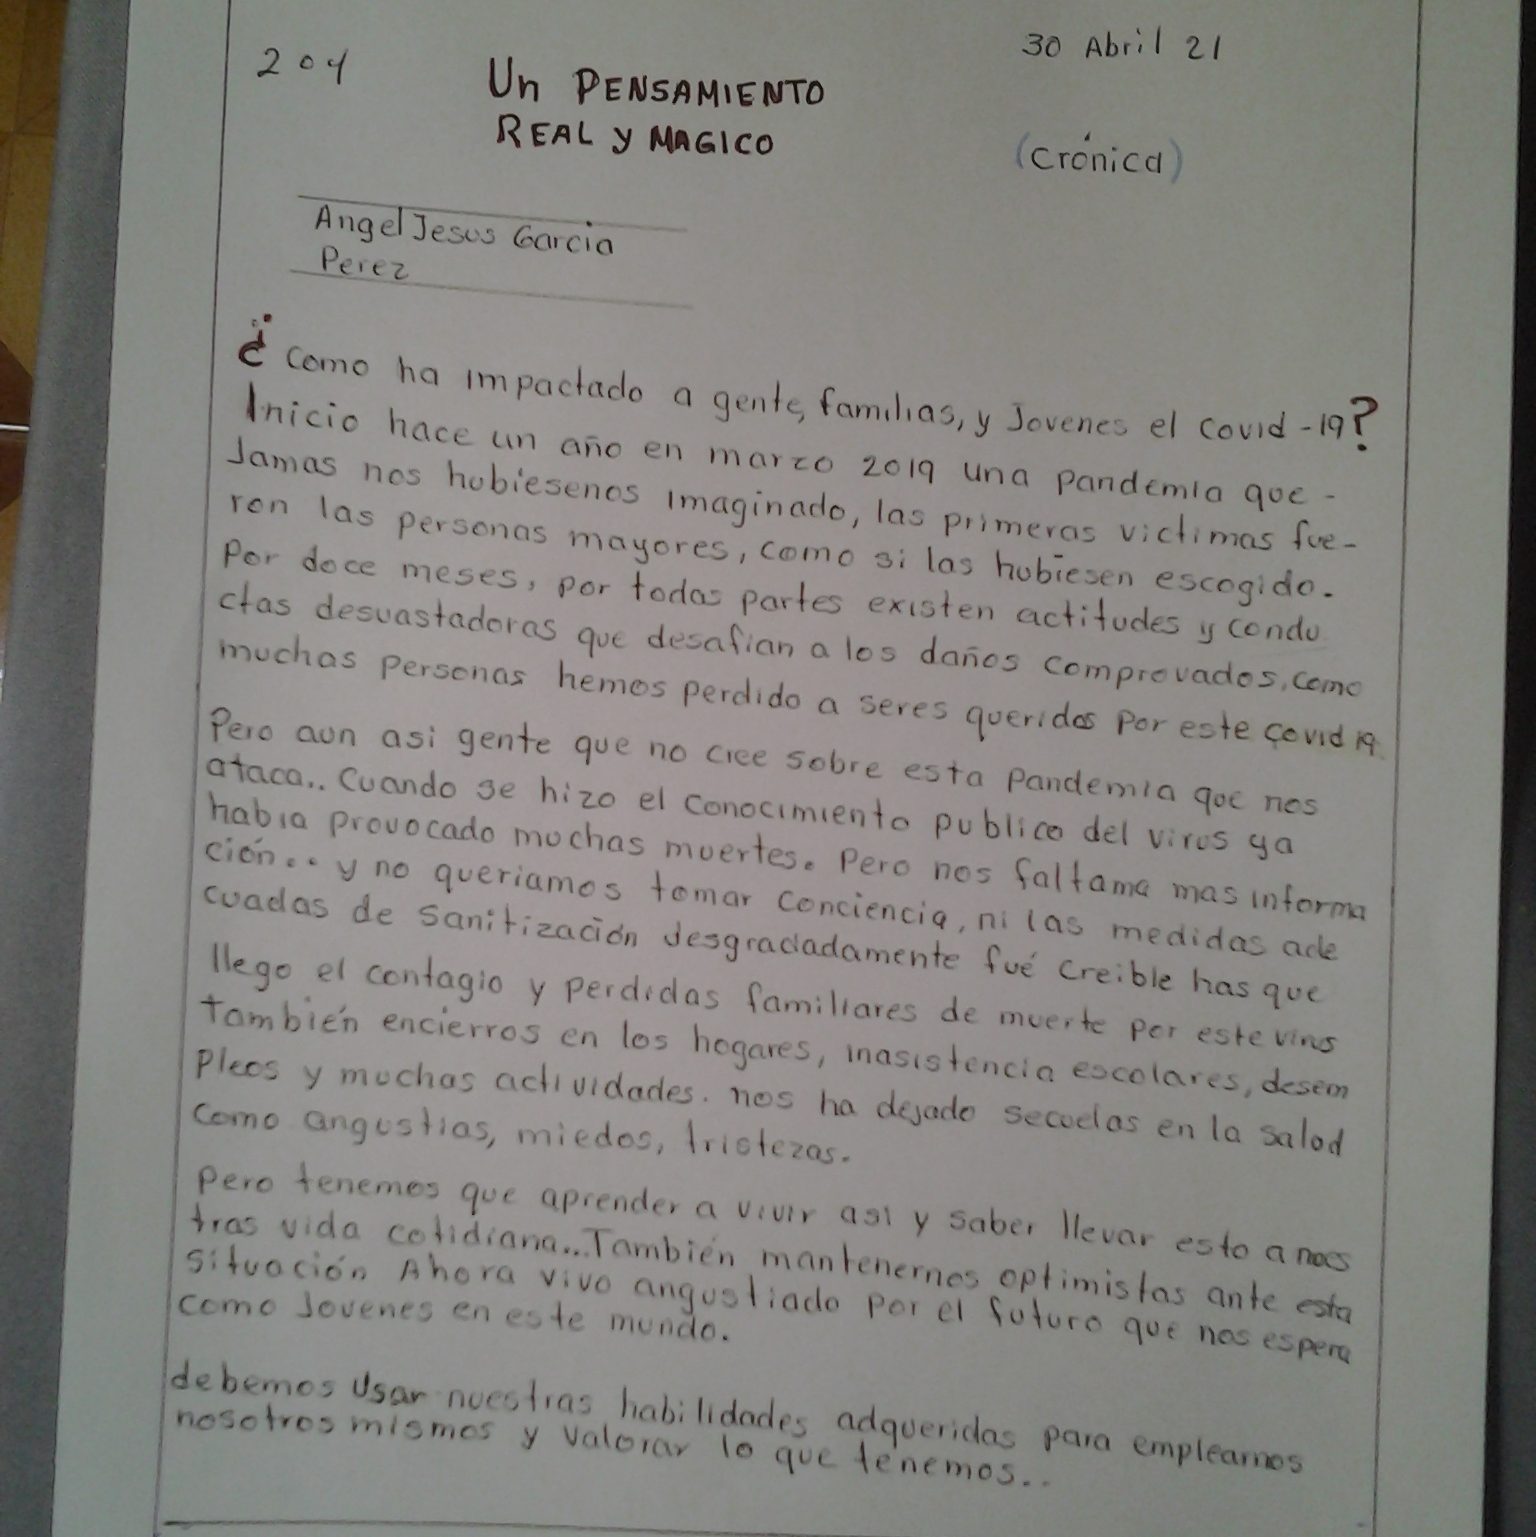 204
30 Abril 21
Un PENSAMIENTO
REAL y MAGICO
(crónica)
Angel Jesus Garcia
Perez
¿como ha impactado a gente, familias, y Jovenes el covid-19?
Inicio hace un año en marzo 2019 una pandemia que -
Jamas nos hubiesenos imaginado, las primeras victimas fue-
ron las personas mayores, como si las hubiesen escogido.
Por doce meses, por todas partes existen actitudes y condu
ctas desvastadoras que desafian a los daños comprovados, como
muchas personas hemos perdido a seres queridos por este covid 19.
Pero aun asi gente que no cree sobre esta pandemia que nos
ataca.. Cuando se hizo el conocimiento publico del virus ya
habia provocado muchas muertes. Pero nos faltama mas informa
ción.. y no queriamos tomar conciencia, ni las medidas ade
cuadas de sanitización desgraciadamente fué creible has que
llego el contagio y perdidas familiares de muerte por este virus
también encierros en los hogares, inasistencia escolares, desem
pleos y muchas actividades. nos ha dejado secuelas en la salud
como angustias, miedos, tristezas.
Pero tenemos que aprender a vivir asi y saber llevar esto a noes
tras vida cotidiana... También mantenernos optimistas ante esta
situación Ahora vivo angustiado por el futuro que nos espera
como Jovenes en este mundo.
debemos usar nuestras habilidades adqueridas para emplearnos
nosotros mismos y valorar lo que tenemos..